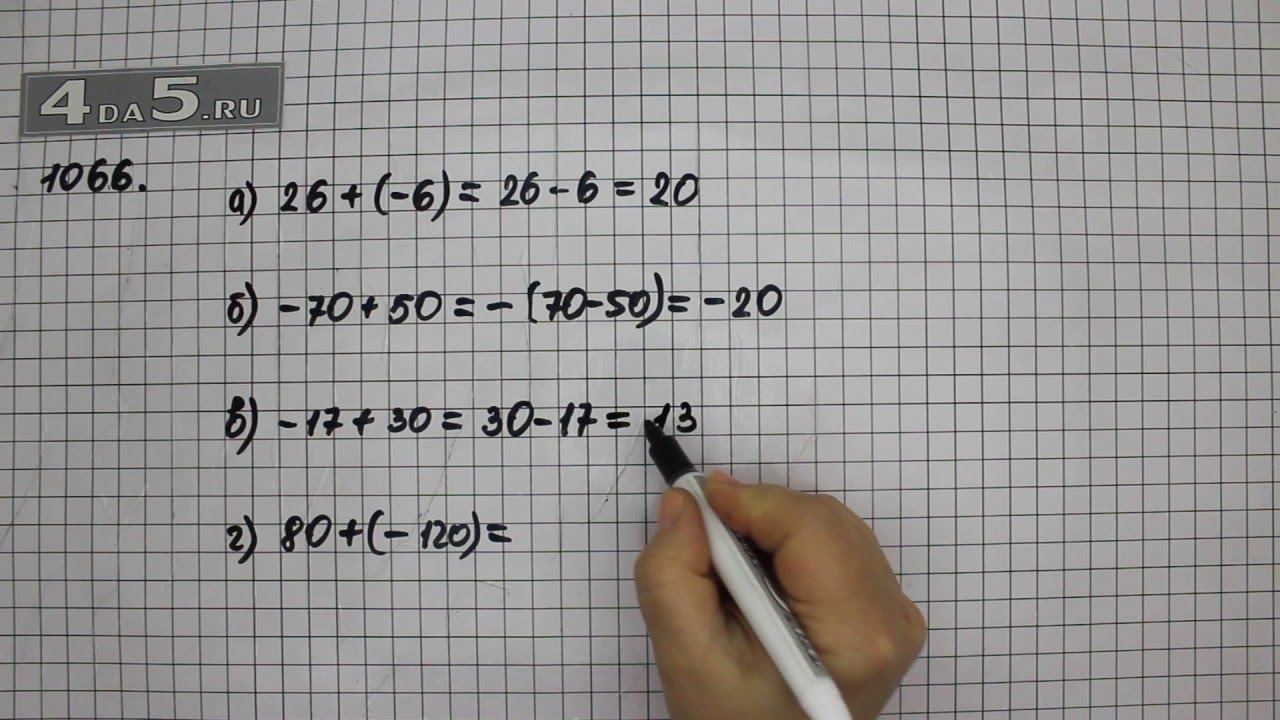 4DA5.RU
1066.
а) 26 + (-6) = 26 - 6 = 20
б) - 70 + 50 = - (70-50) = - 20
в) - 17 + 30 = 30 - 17 = 13
г) 80 + (- 120) =